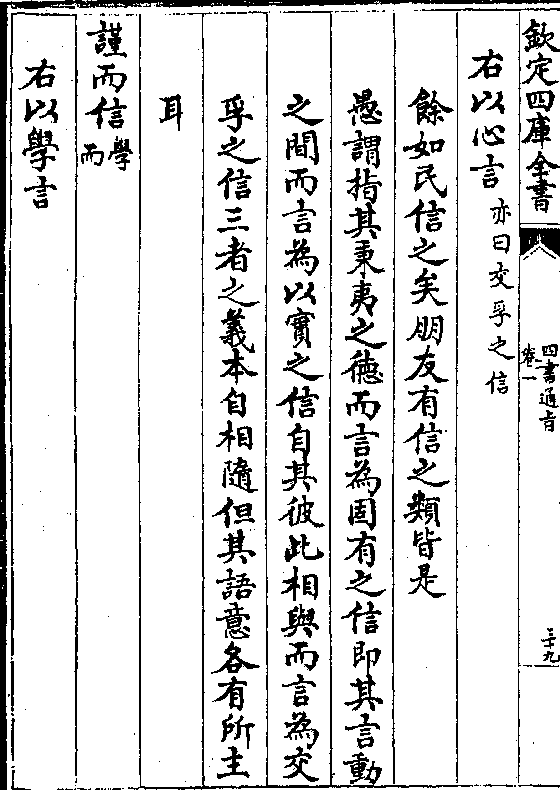 欽定四庫全書
四書通旨
卷一
三十九
右以心言亦曰交孚之信
餘如民信之矣朋友有信之類皆是
愚謂指其秉夷之德而言為固有之信即其言動
之間而言為以實之信自其彼此相與而言為交
孚之信三者之義本自相隨但其語意各有所主
耳
謹而信學而
右以學言